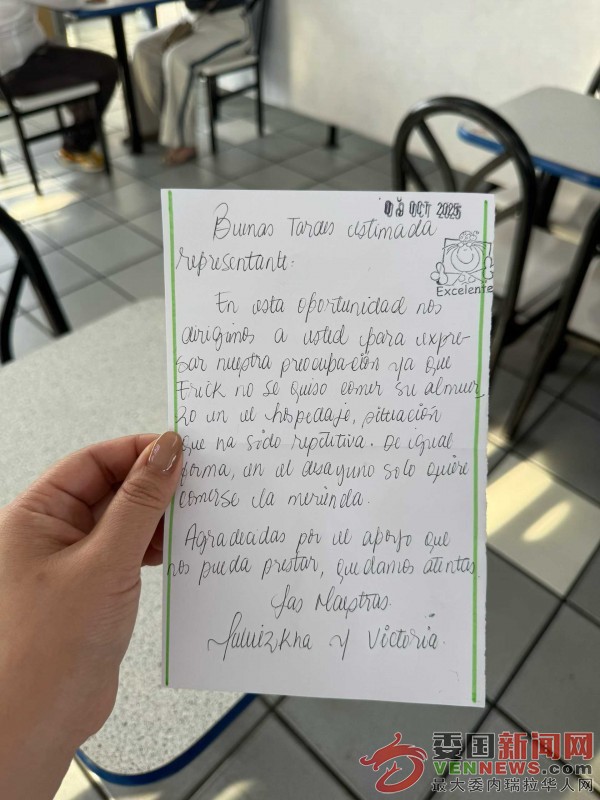 09 OCT 2025
Buenas Tardes estimada
representante:
Excelente
En esta oportunidad nos
dirigimos a usted para expre-
sar nuestra preocupación ya que
Erick no se quiso comer su almuer
zo en el hospedaje, situación
que ha sido repetitiva. De igual
forma, en el desayuno solo quiere
comerse la merienda.
Agradecidas por el apoyo que
nos pueda prestar, quedamos atentas.
Las Maestras.
y Victoria.
委国新闻网
VENNEWS.COM
最大委内瑞拉华人网